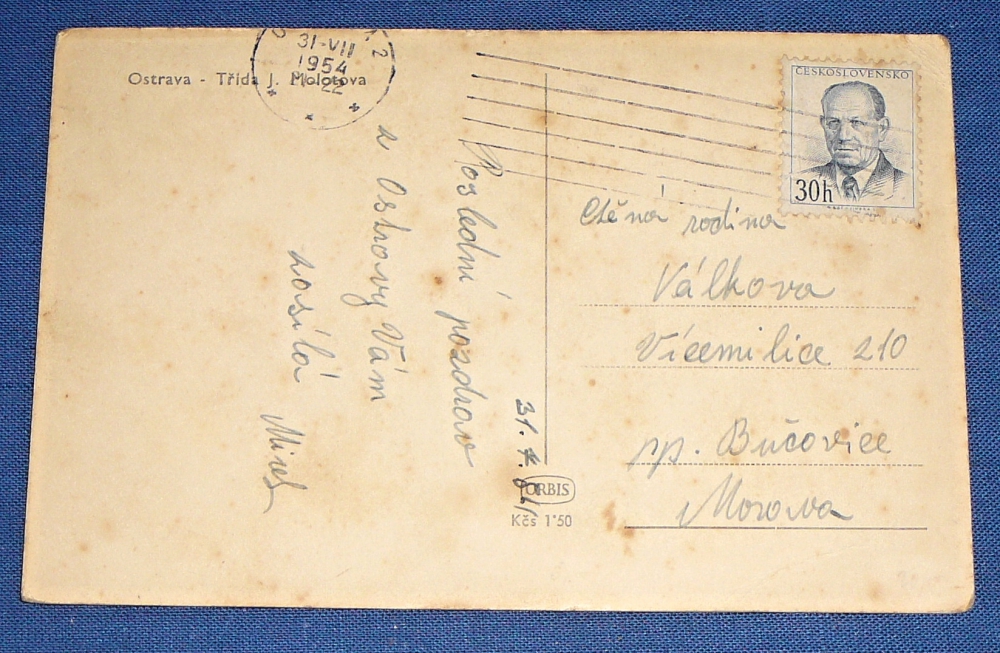 31-VII
1954
-22
Ostrava - Třída J. Molotova
ČESKOSLOVENSKO
30h
Poslední pozdrav
z Ostravy Vám
zasílá
Mirek
31. 7.
Ctěná rodina
Válkova
Vícemilice 210
pp. Bučovice
Morava
ORBIS
Kčs 1˙50